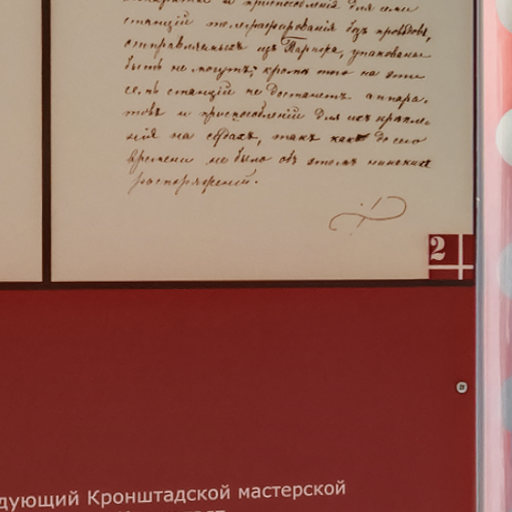 и приспособленія для семи
станцій телеграфированія безъ проводовъ,
отправляемыхъ изъ Парижа, упакованы
быть не могутъ; кромѣ того на эти
семь станцій не достанетъ аппара-
товъ и приспособленій для ихъ крѣпле-
нія на судахъ, такъ какъ до сего
времени не было объ этомъ никакихъ
распоряженій.
2
дующий Кронштадской мастерской